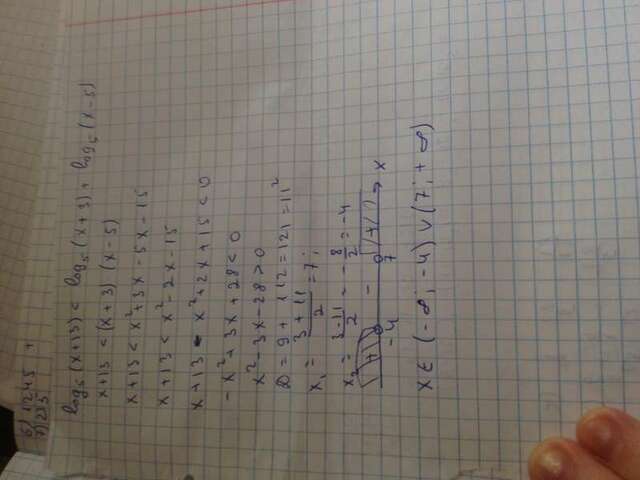 6) 1245 +
7) 235
log₅(x+13) < log₅(x+3) + log₅(x-5)
x+13 < (x+3)(x-5)
x+13 < x²+3x-5x-15
x+13 < x²-2x-15
x+13 - x²+2x+15 < 0
-x²+3x+28 < 0
x²-3x-28 > 0
D = 9 + 112 = 121 = 11²
x₁ = (3+11)/2 = 7;
x₂ = (3-11)/2 = -8/2 = -4
+ - + x
-4 7
x ∈ (-∞; -4) ∪ (7; +∞)